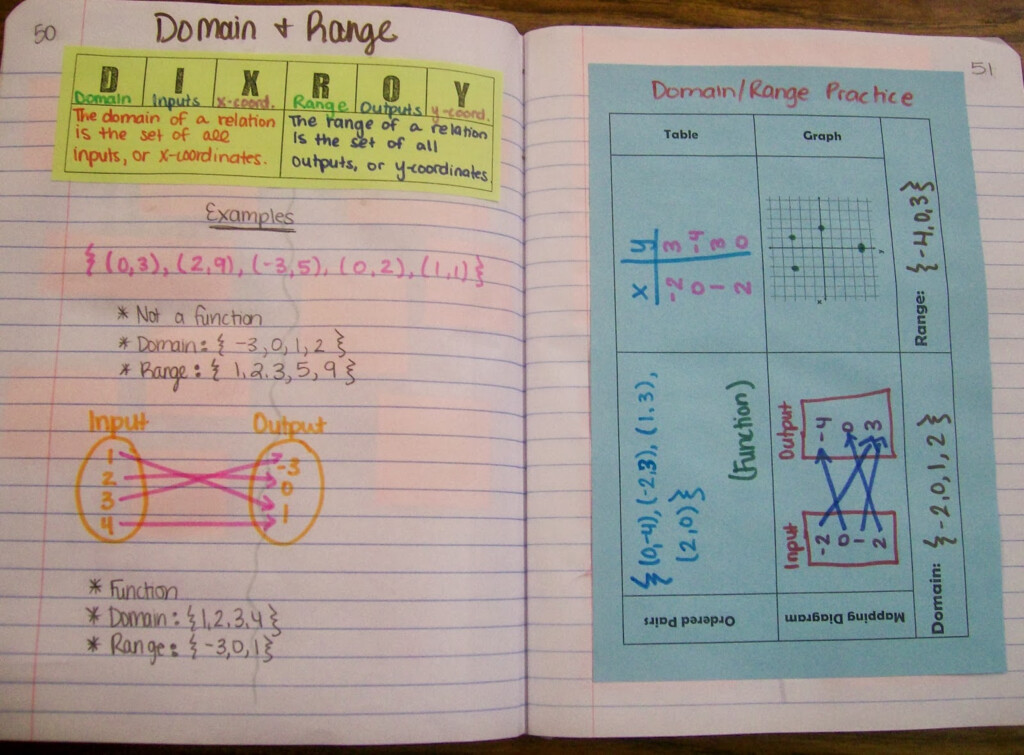 50
Domain + Range
D I X R O Y
Domain Inputs x-coord. Range Outputs y-coord.
The domain of a relation
is the set of all
inputs, or x-coordinates.
The range of a relation
is the set of all
outputs, or y-coordinates
Examples
{(0,3), (2,9), (-3,5), (0,2), (1,1)}
* Not a function
* Domain: { -3, 0, 1, 2 }
* Range: { 1, 2, 3, 5, 9 }
Input Output
1
2
3
4
-3
0
1
* Function
* Domain: {1,2,3,4}
* Range: {-3,0,1}
51
Domain/Range Practice
Table
x y
-2 3
0 -4
1 3
2 0
Graph
x
y
Ordered Pairs
{(0,-4), (-2,3), (1,3),
(2,0)}
(Function)
Mapping Diagram
Input Output
-2
0
1
2
-4
0
3
Domain: {-2,0,1,2}
Range: {-4,0,3}